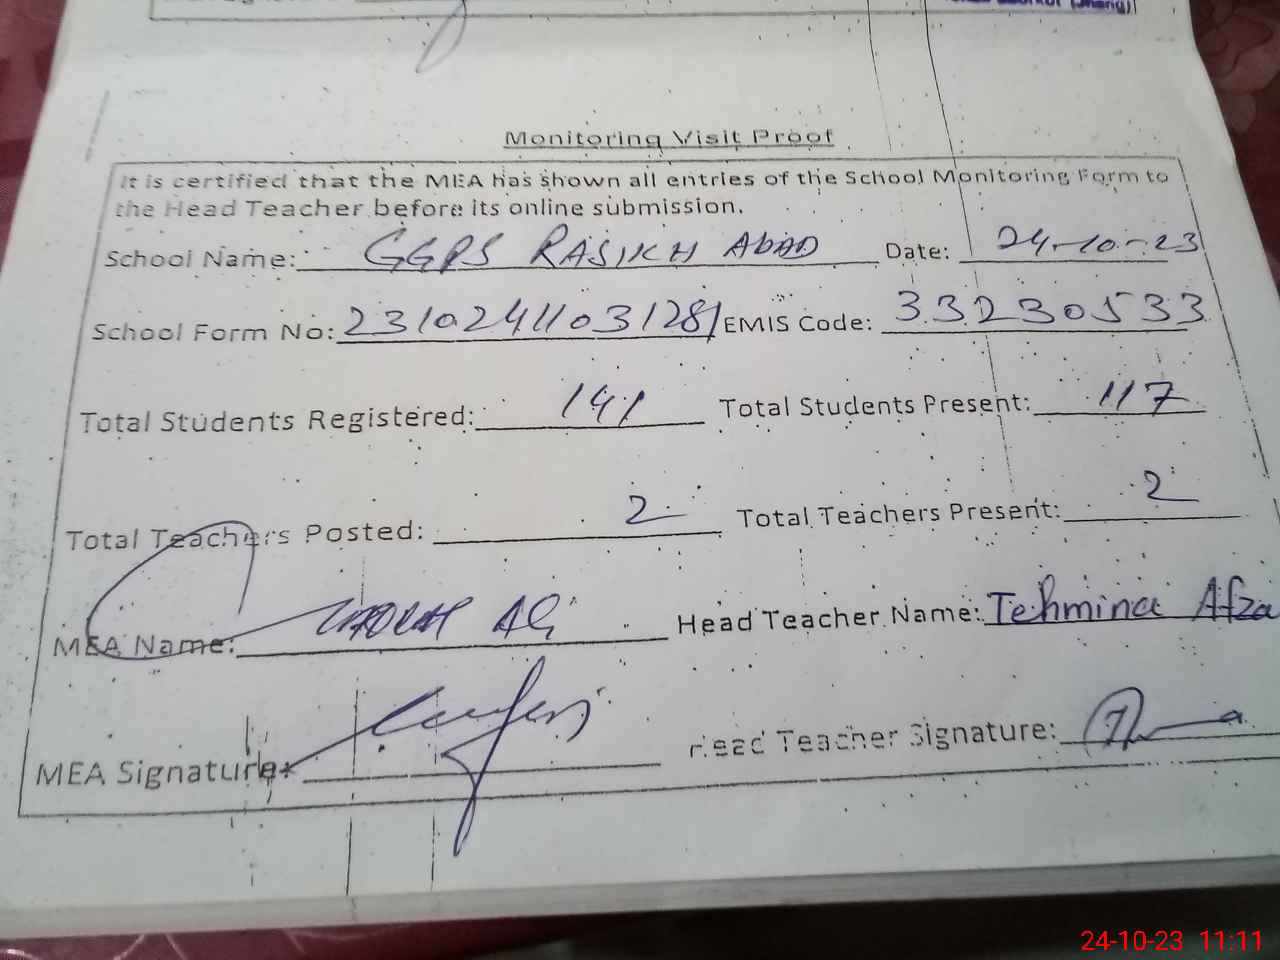 (Jhang)
Monitoring Visit Proof
It is certified that the MEA has shown all entries of the School Monitoring Form to
the Head Teacher before its online submission.
School Name: GGPS RASIKH AbAD Date: 24-10-23
School Form No: 23102411031281 EMIS Code: 33230533
Total Students Registered: 141 Total Students Present: 117
Total Teachers Posted: 2 Total Teachers Present: 2
MEA Name: Ali Head Teacher Name: Tehmina Afza
MEA Signature: Head Teacher Signature:
24-10-23 11:11